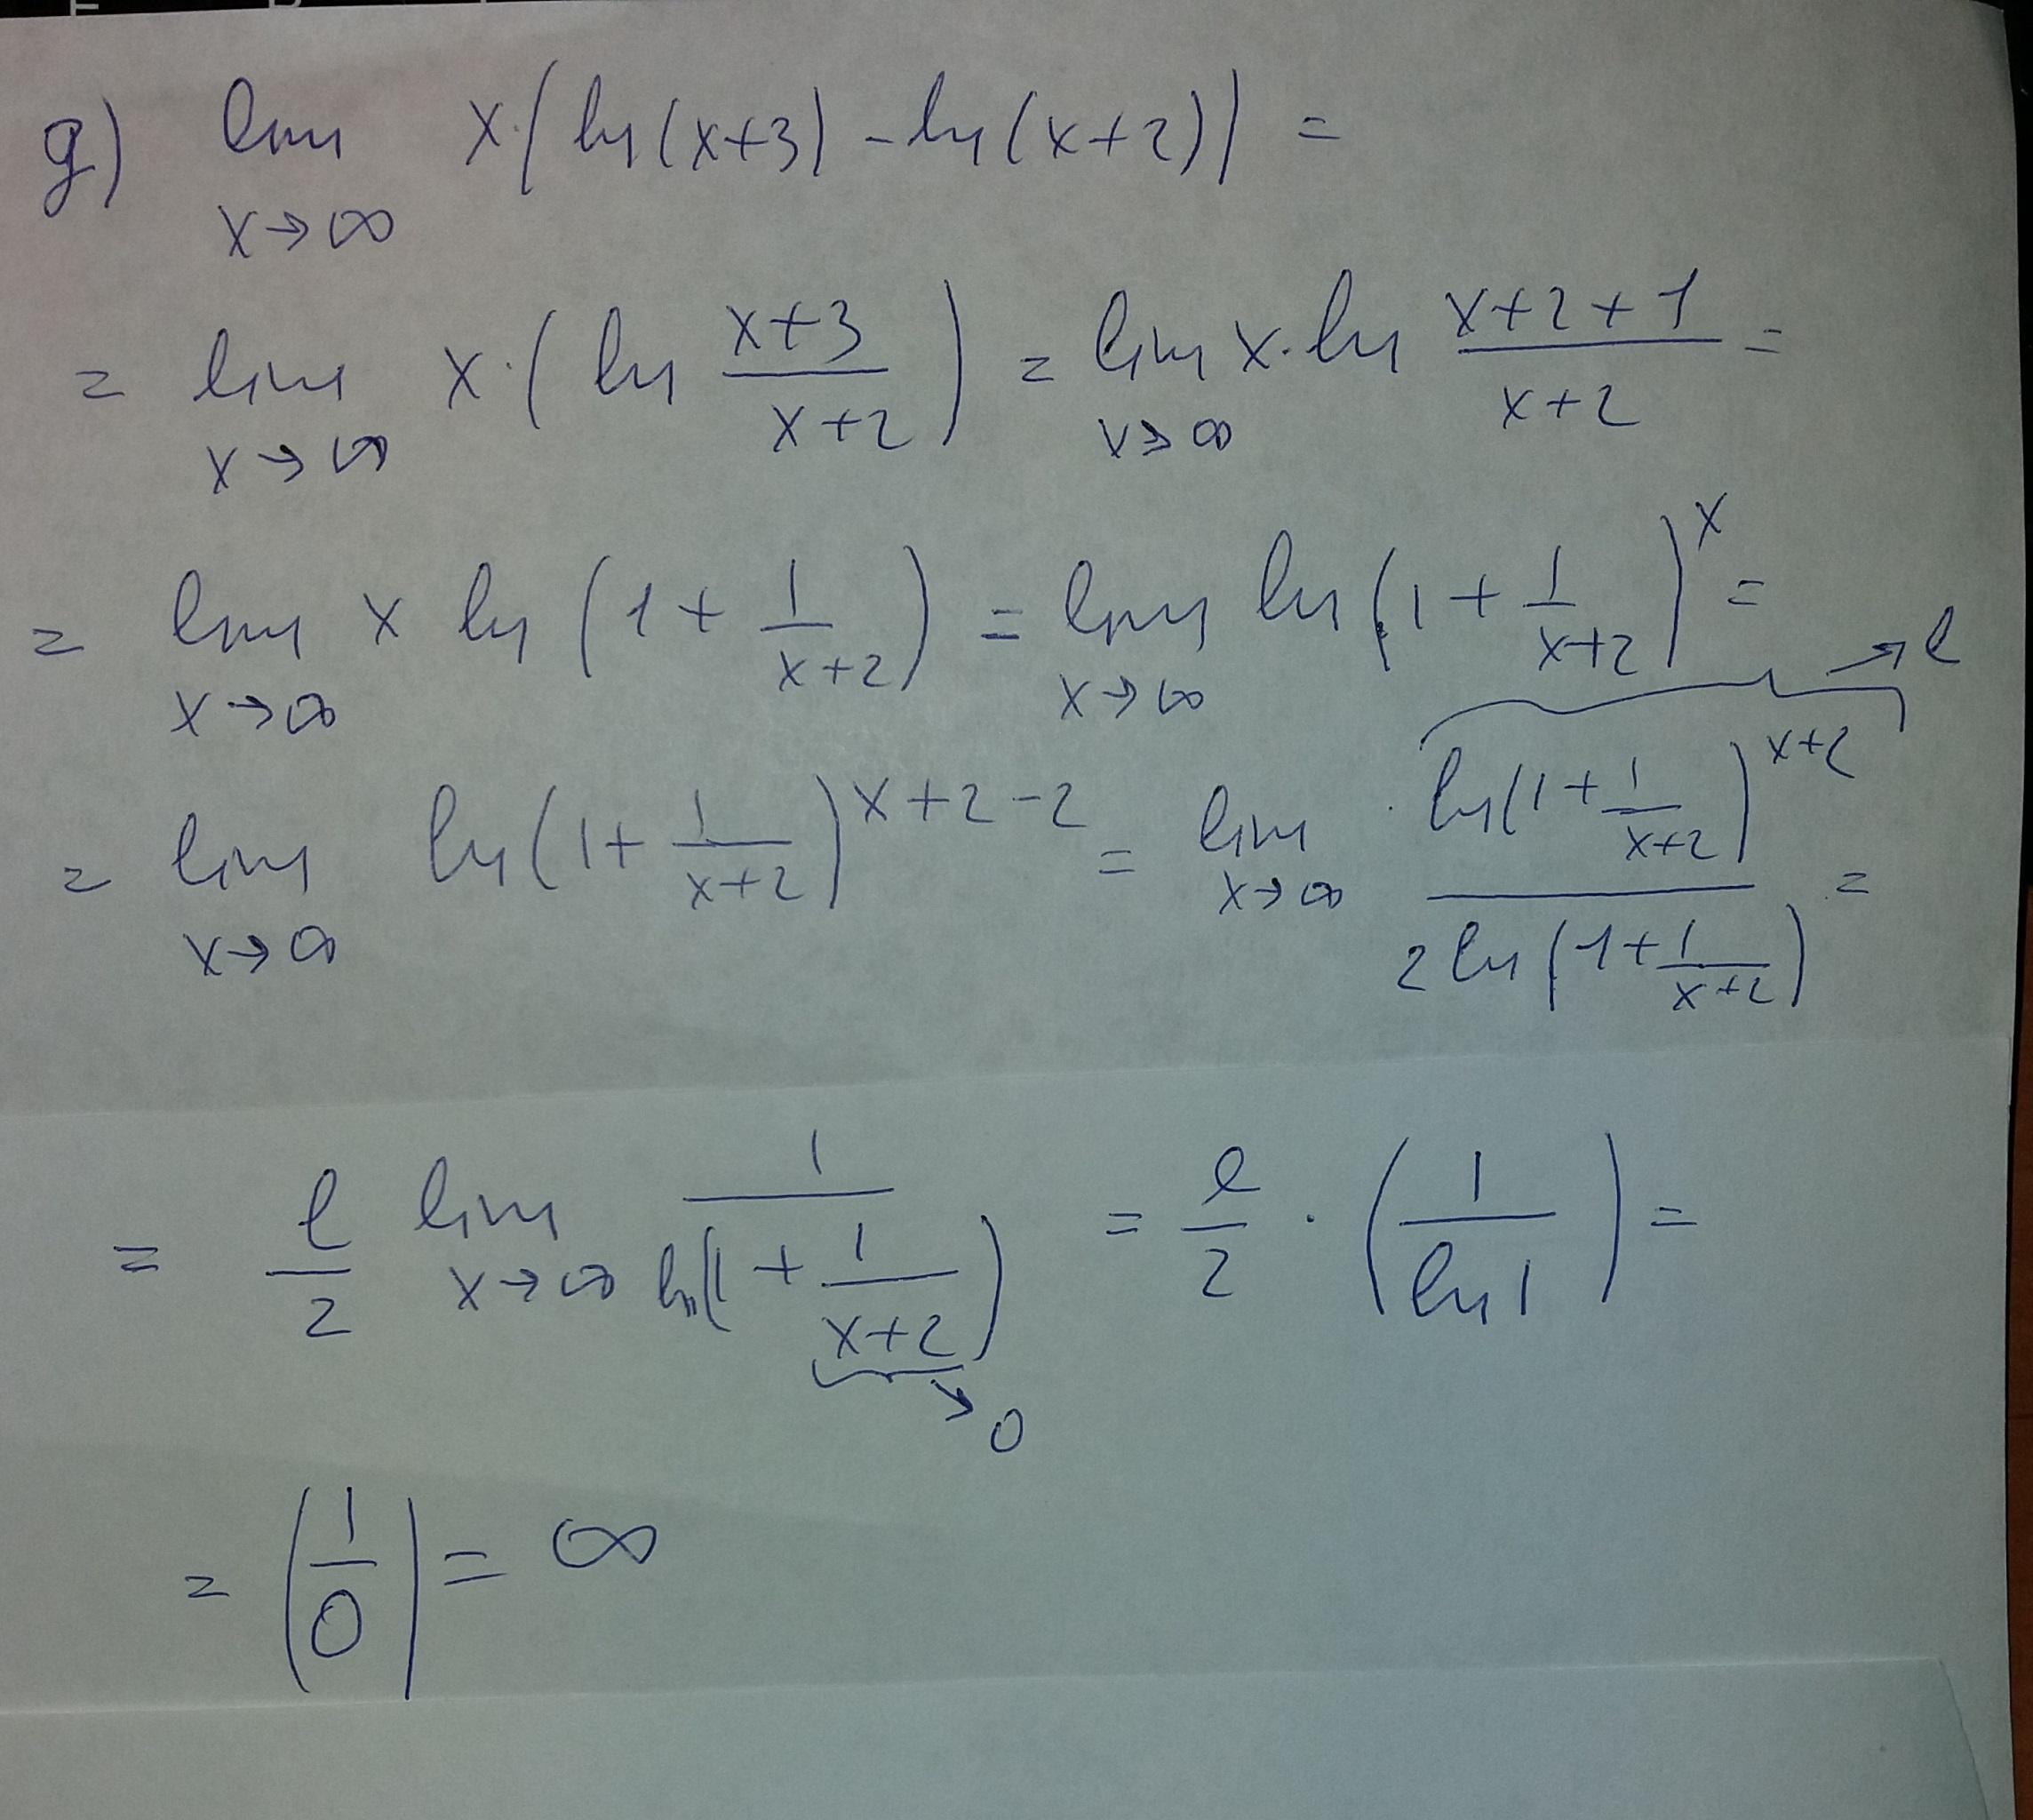 g) lim x→∞ x·(ln(x+3) - ln(x+2)) =
= lim x→∞ x·(ln (x+3)/(x+2)) = lim x→∞ x·ln (x+2+1)/(x+2) =
= lim x→∞ x ln (1 + 1/(x+2)) = lim x→∞ ln (1 + 1/(x+2))^x =
= lim x→∞ ln(1 + 1/(x+2))^(x+2-2) = lim x→∞ ln(1 + 1/(x+2))^(x+2) → e / 2 ln(1 + 1/(x+2)) =
= e/2 lim x→∞ 1/ln(1 + 1/(x+2)) → 0 = e/2 · (1/ln 1) =
= (1/0) = ∞